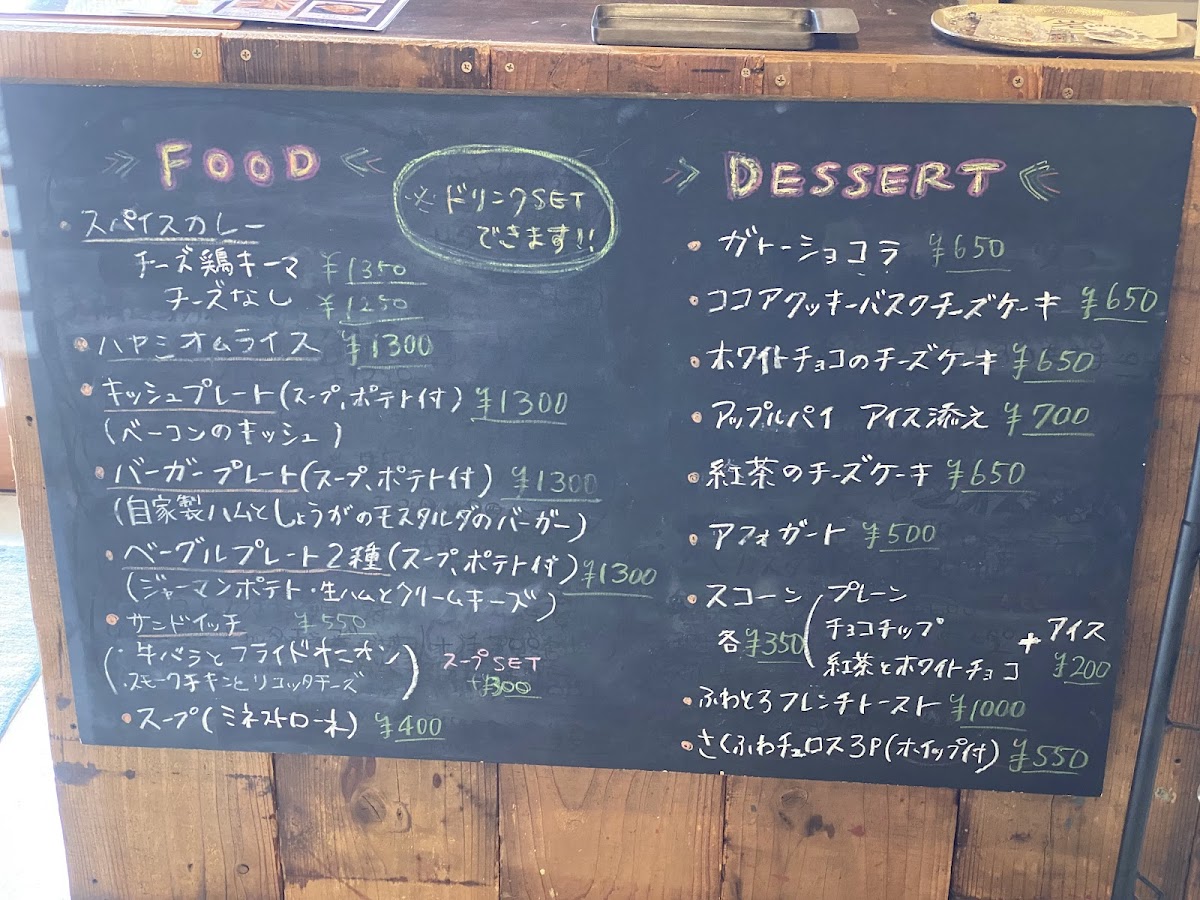 FOOD
※ドリンクSET
できます!!
・スパイスカレー
チーズ鶏キーマ ¥1350
チーズなし ¥1250
・ハヤシオムライス ¥1300
・キッシュプレート(スープ、ポテト付) ¥1300
(ベーコンのキッシュ)
・バーガープレート(スープ、ポテト付) ¥1300
(自家製ハムとしょうがのモスタルダのバーガー)
・ベーグルプレート2種(スープ、ポテト付) ¥1300
(ジャーマンポテト・生ハムとクリームチーズ)
・サンドイッチ ¥550
(・牛バラとフライドオニオン
・スモークチキンとリコッタチーズ)
スープSET
+¥300
・スープ(ミネストローネ) ¥400
DESSERT
・ガトーショコラ ¥650
・ココアクッキーバスクチーズケーキ ¥650
・ホワイトチョコのチーズケーキ ¥650
・アップルパイ アイス添え ¥700
・紅茶のチーズケーキ ¥650
・アフォガート ¥500
・スコーン(プレーン
各¥350 チョコチップ +アイス
紅茶とホワイトチョコ ¥200
・ふわとろフレンチトースト ¥1000
・さくふわチュロス3P(ホイップ付) ¥550